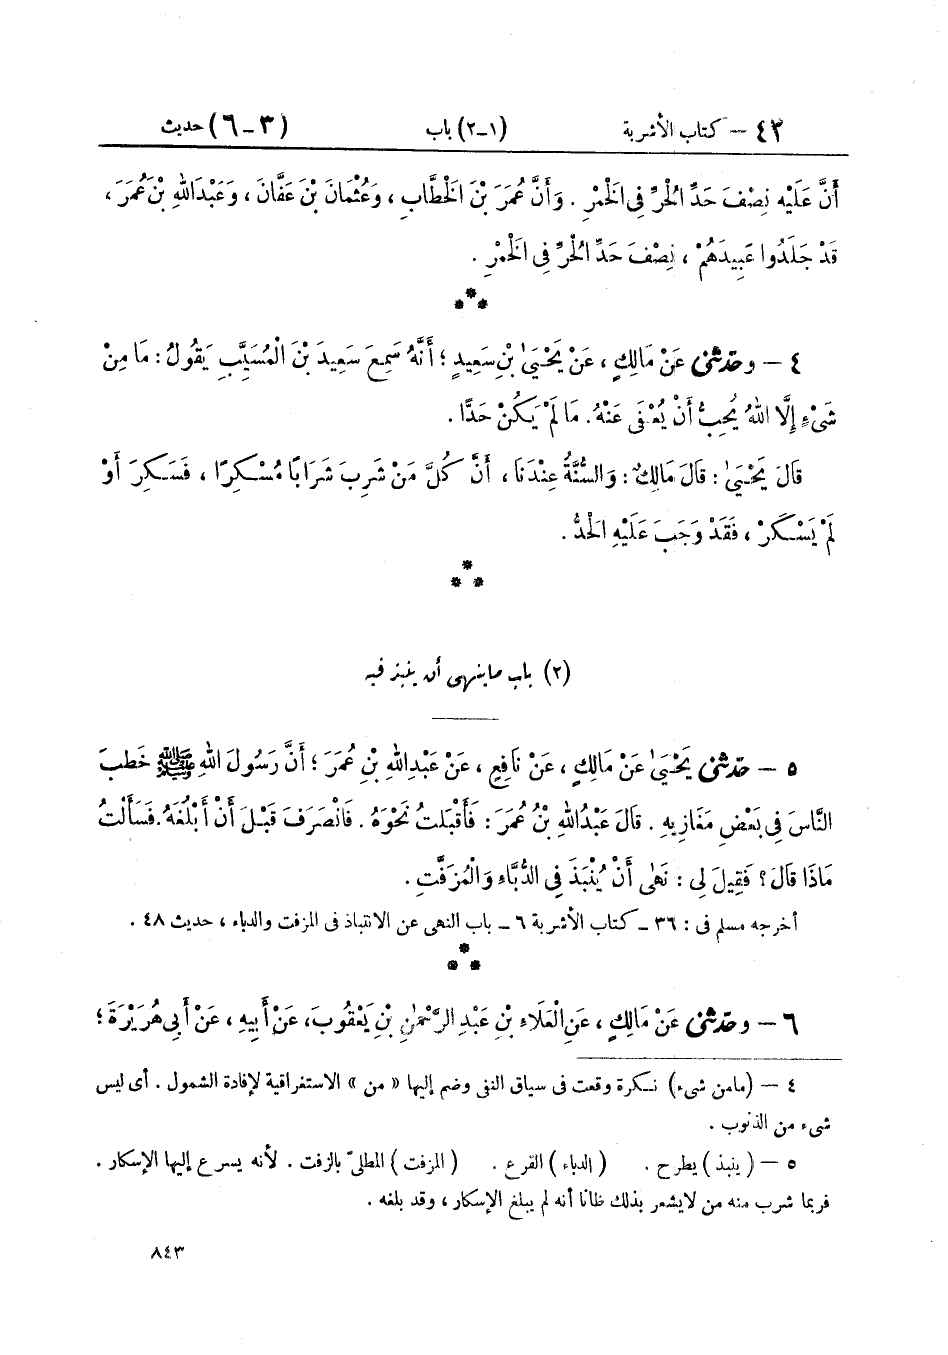 ٤٢ – كتاب الأشربة (١-٢) باب (٣-٦) حديث
أَنَّ عَلَيْهِ نِصْفَ حَدِّ الْحُرِّ فِى الْخَمْرِ . وَأَنَّ عُمَرَ بْنَ الْخَطَّابِ ، وَعُثْمَانَ بْنَ عَفَّانَ ، وَعَبْدَ اللهِ بْنَ عُمَرَ ،
قَدْ جَلَدُوا عَبِيدَهُمْ ، نِصْفَ حَدِّ الْحُرِّ فِى الْخَمْرِ .
٤ – وحَدَّثَنِى عَنْ مَالِكٍ ، عَنْ يَحْيَىٰ بْنِ سَعِيدٍ ؛ أَنَّهُ سَمِعَ سَعِيدَ بْنَ الْمُسَيَّبِ يَقُولُ : مَا مِنْ
شَىْءٍ إِلَّا اللهُ يُحِبُّ أَنْ يُعْفَى عَنْهُ . مَا لَمْ يَكُنْ حَدًّا .
قَالَ يَحْيَىٰ : قَالَ مَالِكٌ : وَالسُّنَّةُ عِنْدَنَا ، أَنَّ كُلَّ مَنْ شَرِبَ شَرَابًا مُسْكِرًا ، فَسَكِرَ أَوْ
لَمْ يَسْكَرْ ، فَقَدْ وَجَبَ عَلَيْهِ الْحَدُّ .
(٢) باب ما ينهى أن ينبذ فيه
٥ – حَدَّثَنِى يَحْيَىٰ عَنْ مَالِكٍ ، عَنْ نَافِعٍ ، عَنْ عَبْدِ اللهِ بْنِ عُمَرَ ؛ أَنَّ رَسُولَ اللهِ ﷺ خَطَبَ
النَّاسَ فِى بَعْضِ مَغَازِيهِ . قَالَ عَبْدُ اللهِ بْنُ عُمَرَ : فَأَقْبَلْتُ نَحْوَهُ . فَانْصَرَفَ قَبْلَ أَنْ أَبْلُغَهُ . فَسَأَلْتُ
مَاذَا قَالَ ؟ فَقِيلَ لِى : نَهَى أَنْ يُنْبَذَ فِى الدُّبَّاءِ وَالْمُزَفَّتِ .
أخرجه مسلم فى : ٣٦ – كتاب الأشربة ٦ – باب النهى عن الانتباذ فى المزفت والدباء ، حديث ٤٨ .
٦ – وحَدَّثَنِى عَنْ مَالِكٍ ، عَنِ الْعَلَاءِ بْنِ عَبْدِ الرَّحْمٰنِ بْنِ يَعْقُوبَ ، عَنْ أَبِيهِ ، عَنْ أَبِى هُرَيْرَةَ ؛
٤ – (مامن شىء) نكرة وقعت فى سياق النفى وضم إليها « من » الاستغراقية لإفادة الشمول . أى ليس
شىء من الذنوب .
٥ – (ينبذ) يطرح . (الدباء) القرع . (المزفت) المطلىّ بالزفت . لأنه يسرع إليها الإسكار .
فربما شرب منه من لايشعر بذلك ظانا أنه لم يبلغ الإسكار ، وقد بلغه .
٨٤٣